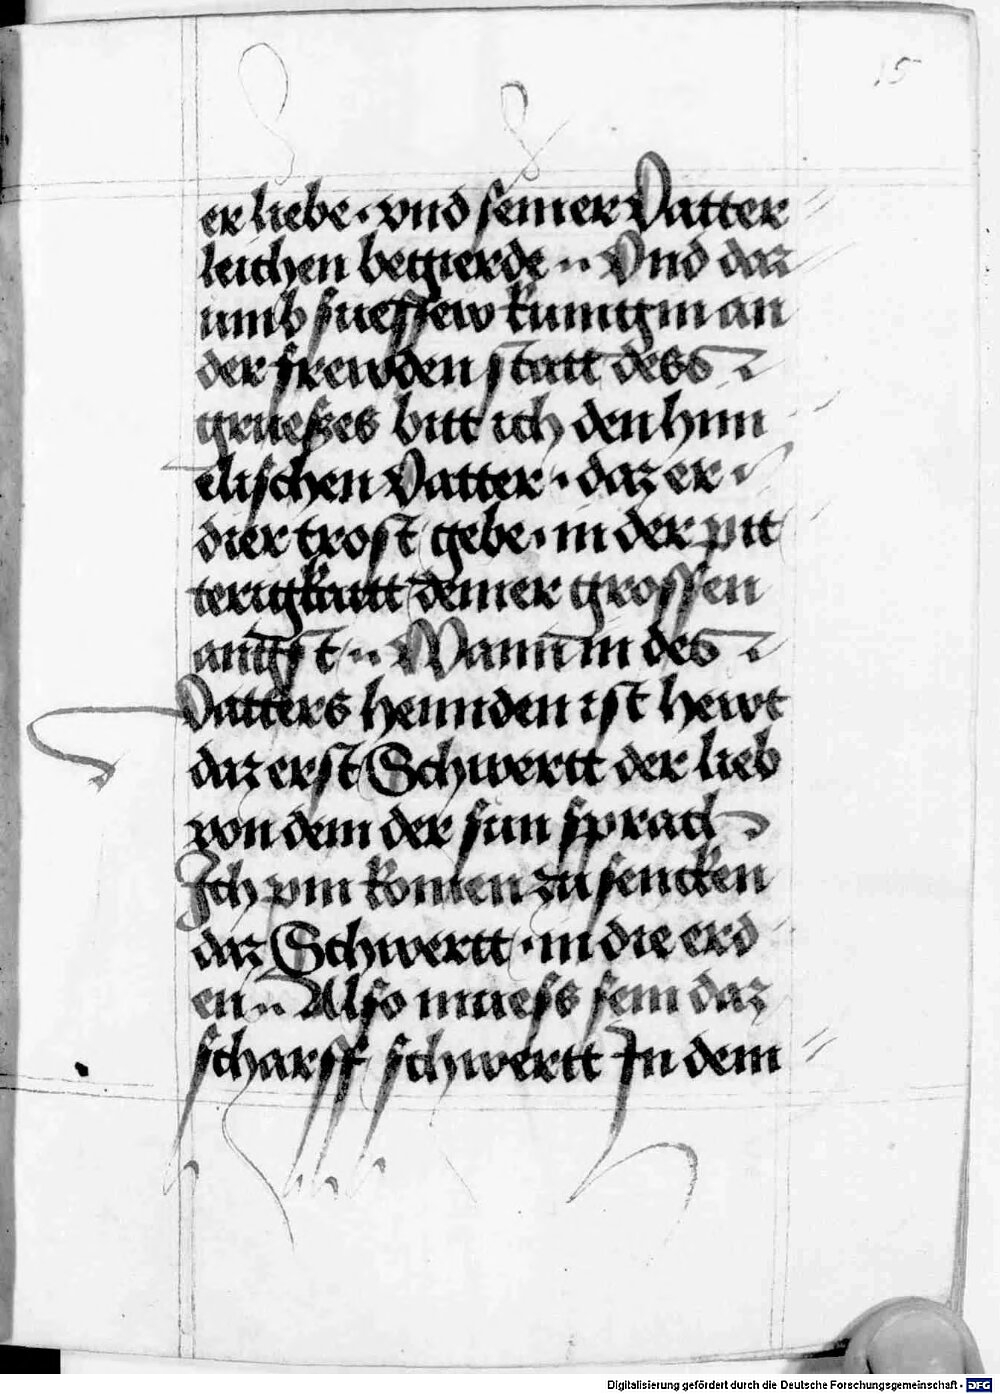 15
er liebe · vnd seiner Vatter
leichen begierde ·· Vnd daz
umb suessew kunigin an
der frewden statt dess
gruesses bitt ich den him
elischen Vatter · daz er
dier trost gebe · in der pit
terigkaitt deiner grossen
anngst ·· Wann in des
Vatters hennden ist hewt
daz erst Schwertt der lieb
von dem der sun sprach
Ich pin komen zu sencken
daz Schwertt · in die erd
en ·· Also muess sein daz
scharff schwertt In dem
Digitalisierung gefördert durch die Deutsche Forschungsgemeinschaft - DFG